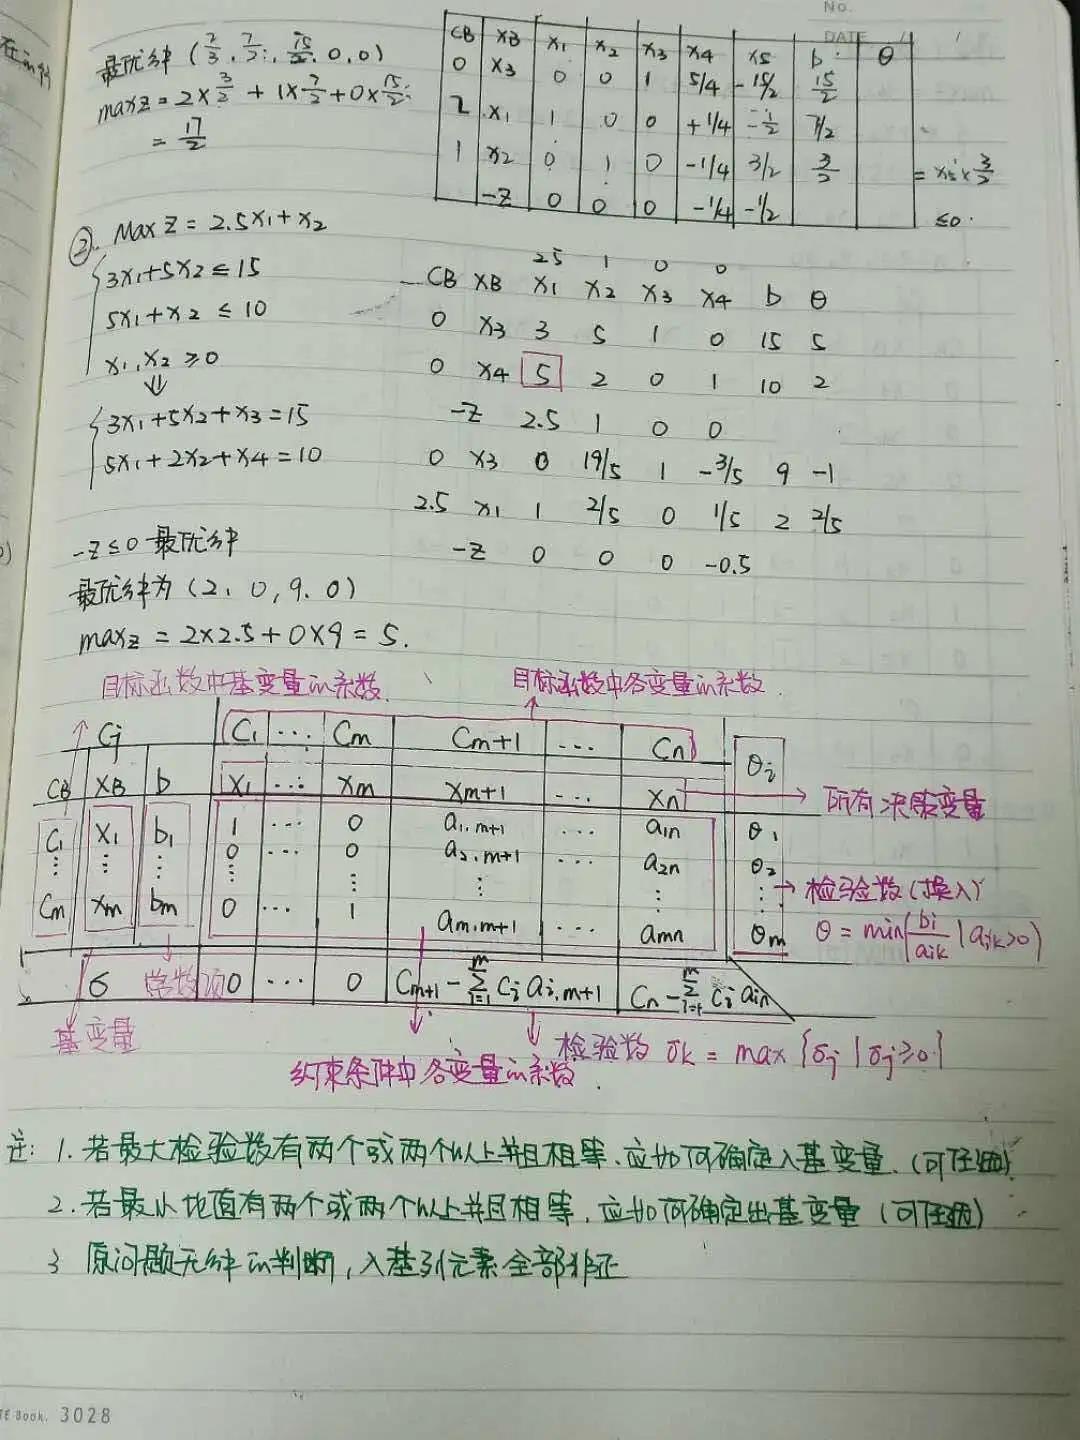 No.
DATE
最优解 (7/3, 7/2, 15/2, 0, 0)
max z = 2×3/2 + 1×7/2 + 0×15/2
= 17/2
CB XB x1 x2 x3 x4 x5 b θ
0 x3 0 0 1 5/4 -15/2 15/2
2 x1 1 0 0 +1/4 -1/2 7/2
1 x2 0 1 0 -1/4 3/2 3/2
-Z 0 0 0 -1/4 -1/2
≤0.
②. Max Z = 2.5x1 + x2
3x1+5x2 ≤ 15
5x1+x2 ≤ 10
x1, x2 ≥ 0
⇓
3x1+5x2+x3=15
5x1+2x2+x4=10
25 1 0 0
CB XB x1 x2 x3 x4 b θ
0 x3 3 5 1 0 15 5
0 x4 5 2 0 1 10 2
-Z 2.5 1 0 0
0 x3 0 19/5 1 -3/5 9 -1
2.5 x1 1 2/5 0 1/5 2 2/5
-Z 0 0 0 -0.5
-Z≤0 最优解
最优解为 (2, 0, 9, 0)
max z = 2×2.5+0×9 = 5.
目标函数中基变量的系数
目标函数中各变量的系数
Cj C1 … Cm Cm+1 … Cn θi
CB XB b x1 … xm xm+1 … xn
所有决策变量
C1 x1 b1 1 … 0 a1,m+1 … a1n θ1
⋮ ⋮ ⋮ 0 … 0 a2,m+1 … a2n θ2
⋮ ⋮ ⋮ ⋮ ⋮
Cm xm bm 0 … 1 am,m+1 … amn θm
检验数(换入)
θ = min{bi/aik | aik>0}
σ 常数项 0 … 0 Cm+1 - Σ(i=1→m) Ci ai,m+1 Cn - Σ(i=1→m) Ci ain
基变量
检验数 σk = max{σj | σj≥0}
约束条件中各变量的系数
注: 1. 若最大检验数有两个或两个以上并且相等, 应如何确定入基变量. (可任选)
2. 若最小比值有两个或两个以上并且相等, 应如何确定出基变量 (可任选)
3 原问题无解的判断, 入基列元素全部非正
TE Book. 3028